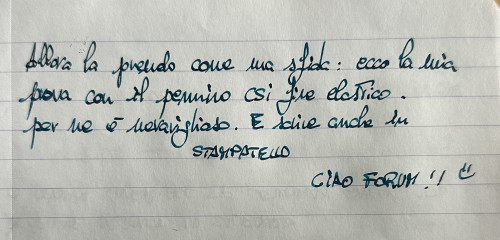 Allora la prendo come una sfida: ecco la mia
prova con il pennino CSI fine elastico.
per me è meraviglioso. E scrive anche in
STAMPATELLO
CIAO FORUM!!